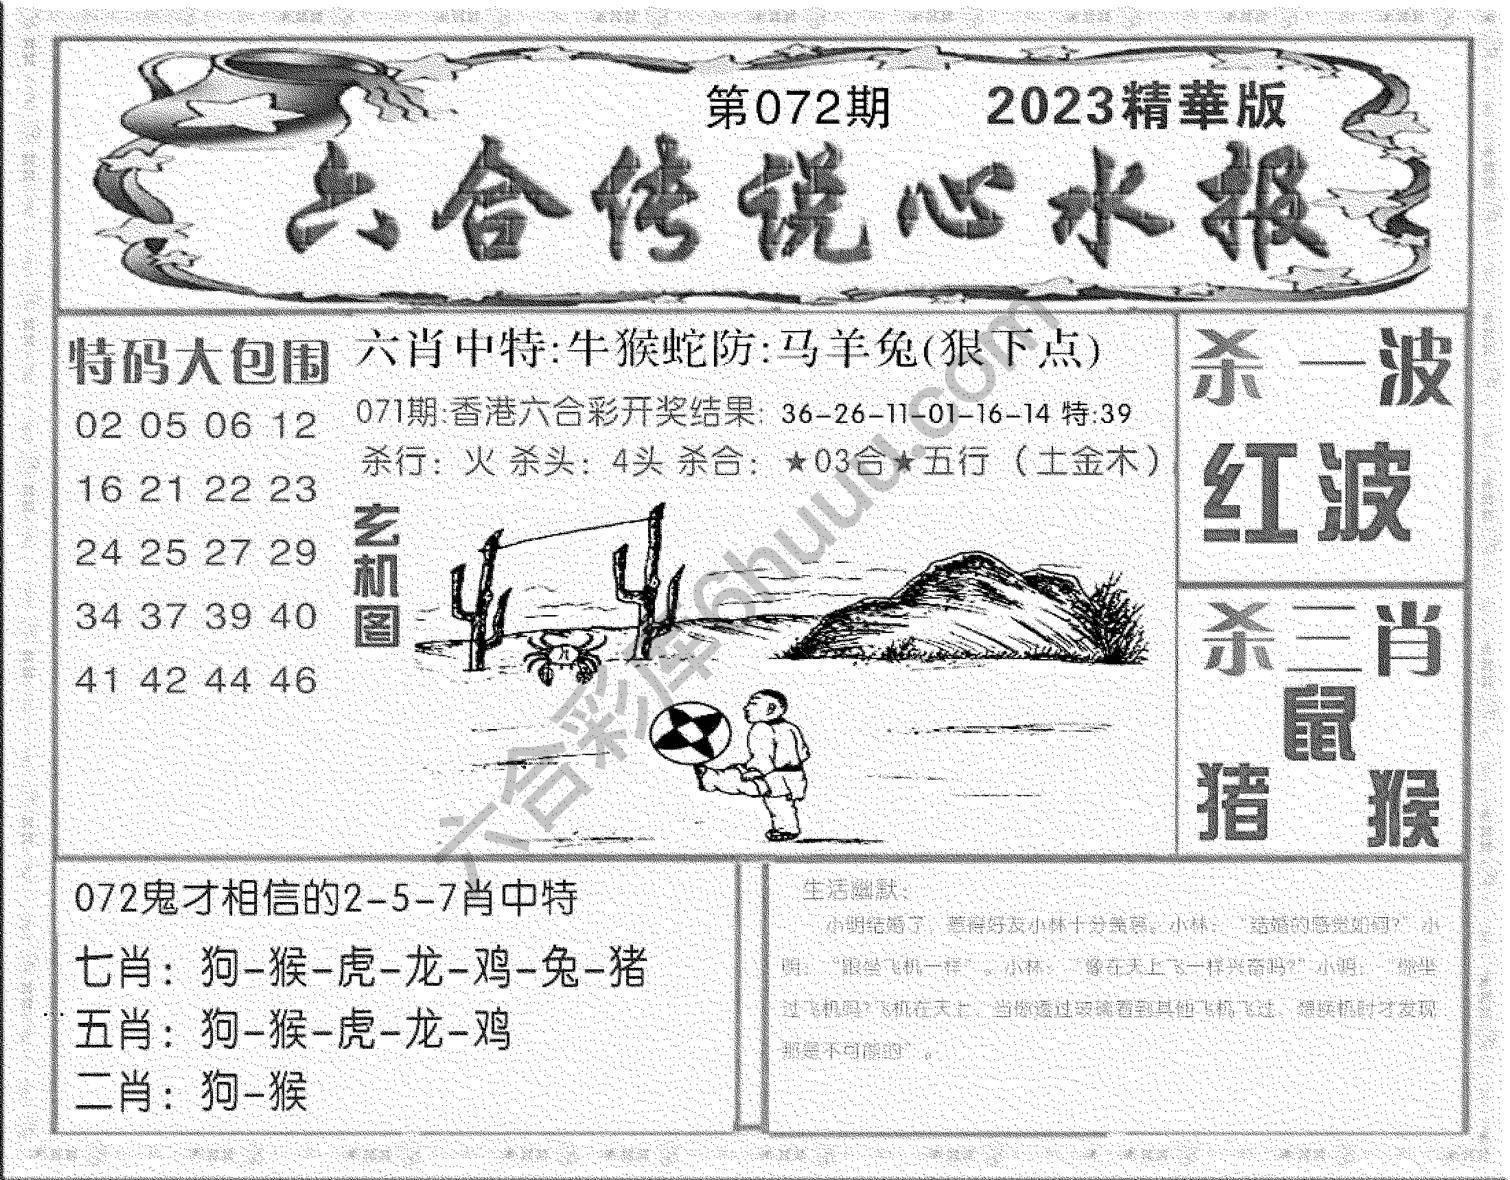 第072期 2023精華版
六合传说心水报
特码大包围
02 05 06 12
16 21 22 23
24 25 27 29
34 37 39 40
41 42 44 46
六肖中特:牛猴蛇防:马羊兔(狠下点)
071期:香港六合彩开奖结果: 36-26-11-01-16-14 特:39
杀行: 火 杀头: 4头 杀合: ★03合★五行 (土金木)
玄机图
杀一波
红波
杀三肖
鼠
猪 猴
072鬼才相信的2-5-7肖中特
七肖: 狗-猴-虎-龙-鸡-兔-猪
五肖: 狗-猴-虎-龙-鸡
二肖: 狗-猴
生活幽默:
小明结婚了，惹得好友小林十分羡慕。小林: "结婚的感觉如何?" 小
明: "跟坐飞机一样"。小林: "像在天上飞一样兴奋吗?" 小明: "你坐
过飞机吗?飞机在天上，当你透过玻璃看到其他飞机飞过，想换机时才发现
那是不可能的"。
六合彩库6huuu.com